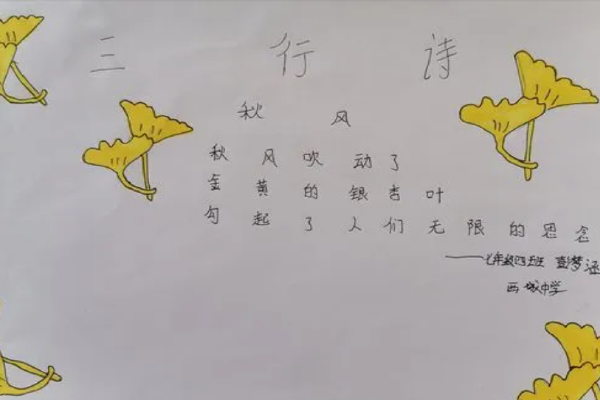 三行诗
秋风
秋风吹动了
金黄的银杏叶
勾起了人们无限的思念
——七年级四班 彭梦涵
西城中学